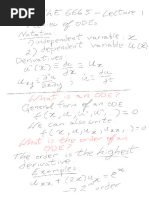 AE 6665 - Lecture 1
of ODEs
Notation
1) independent variable: x
2) dependent variable u(x)
Derivatives
u'(x) = du/dx = uₓ
What is an ODE?
General form of an ODE
f(x, u, u', )=0
We can also write
f(x, u, uₓ, uₓₓ, )=0
What is the order of an
ODE?
The order is the highest
derivative
Examples:
uₓₓ + (2x)uₓ = eˣ
→ 2 order